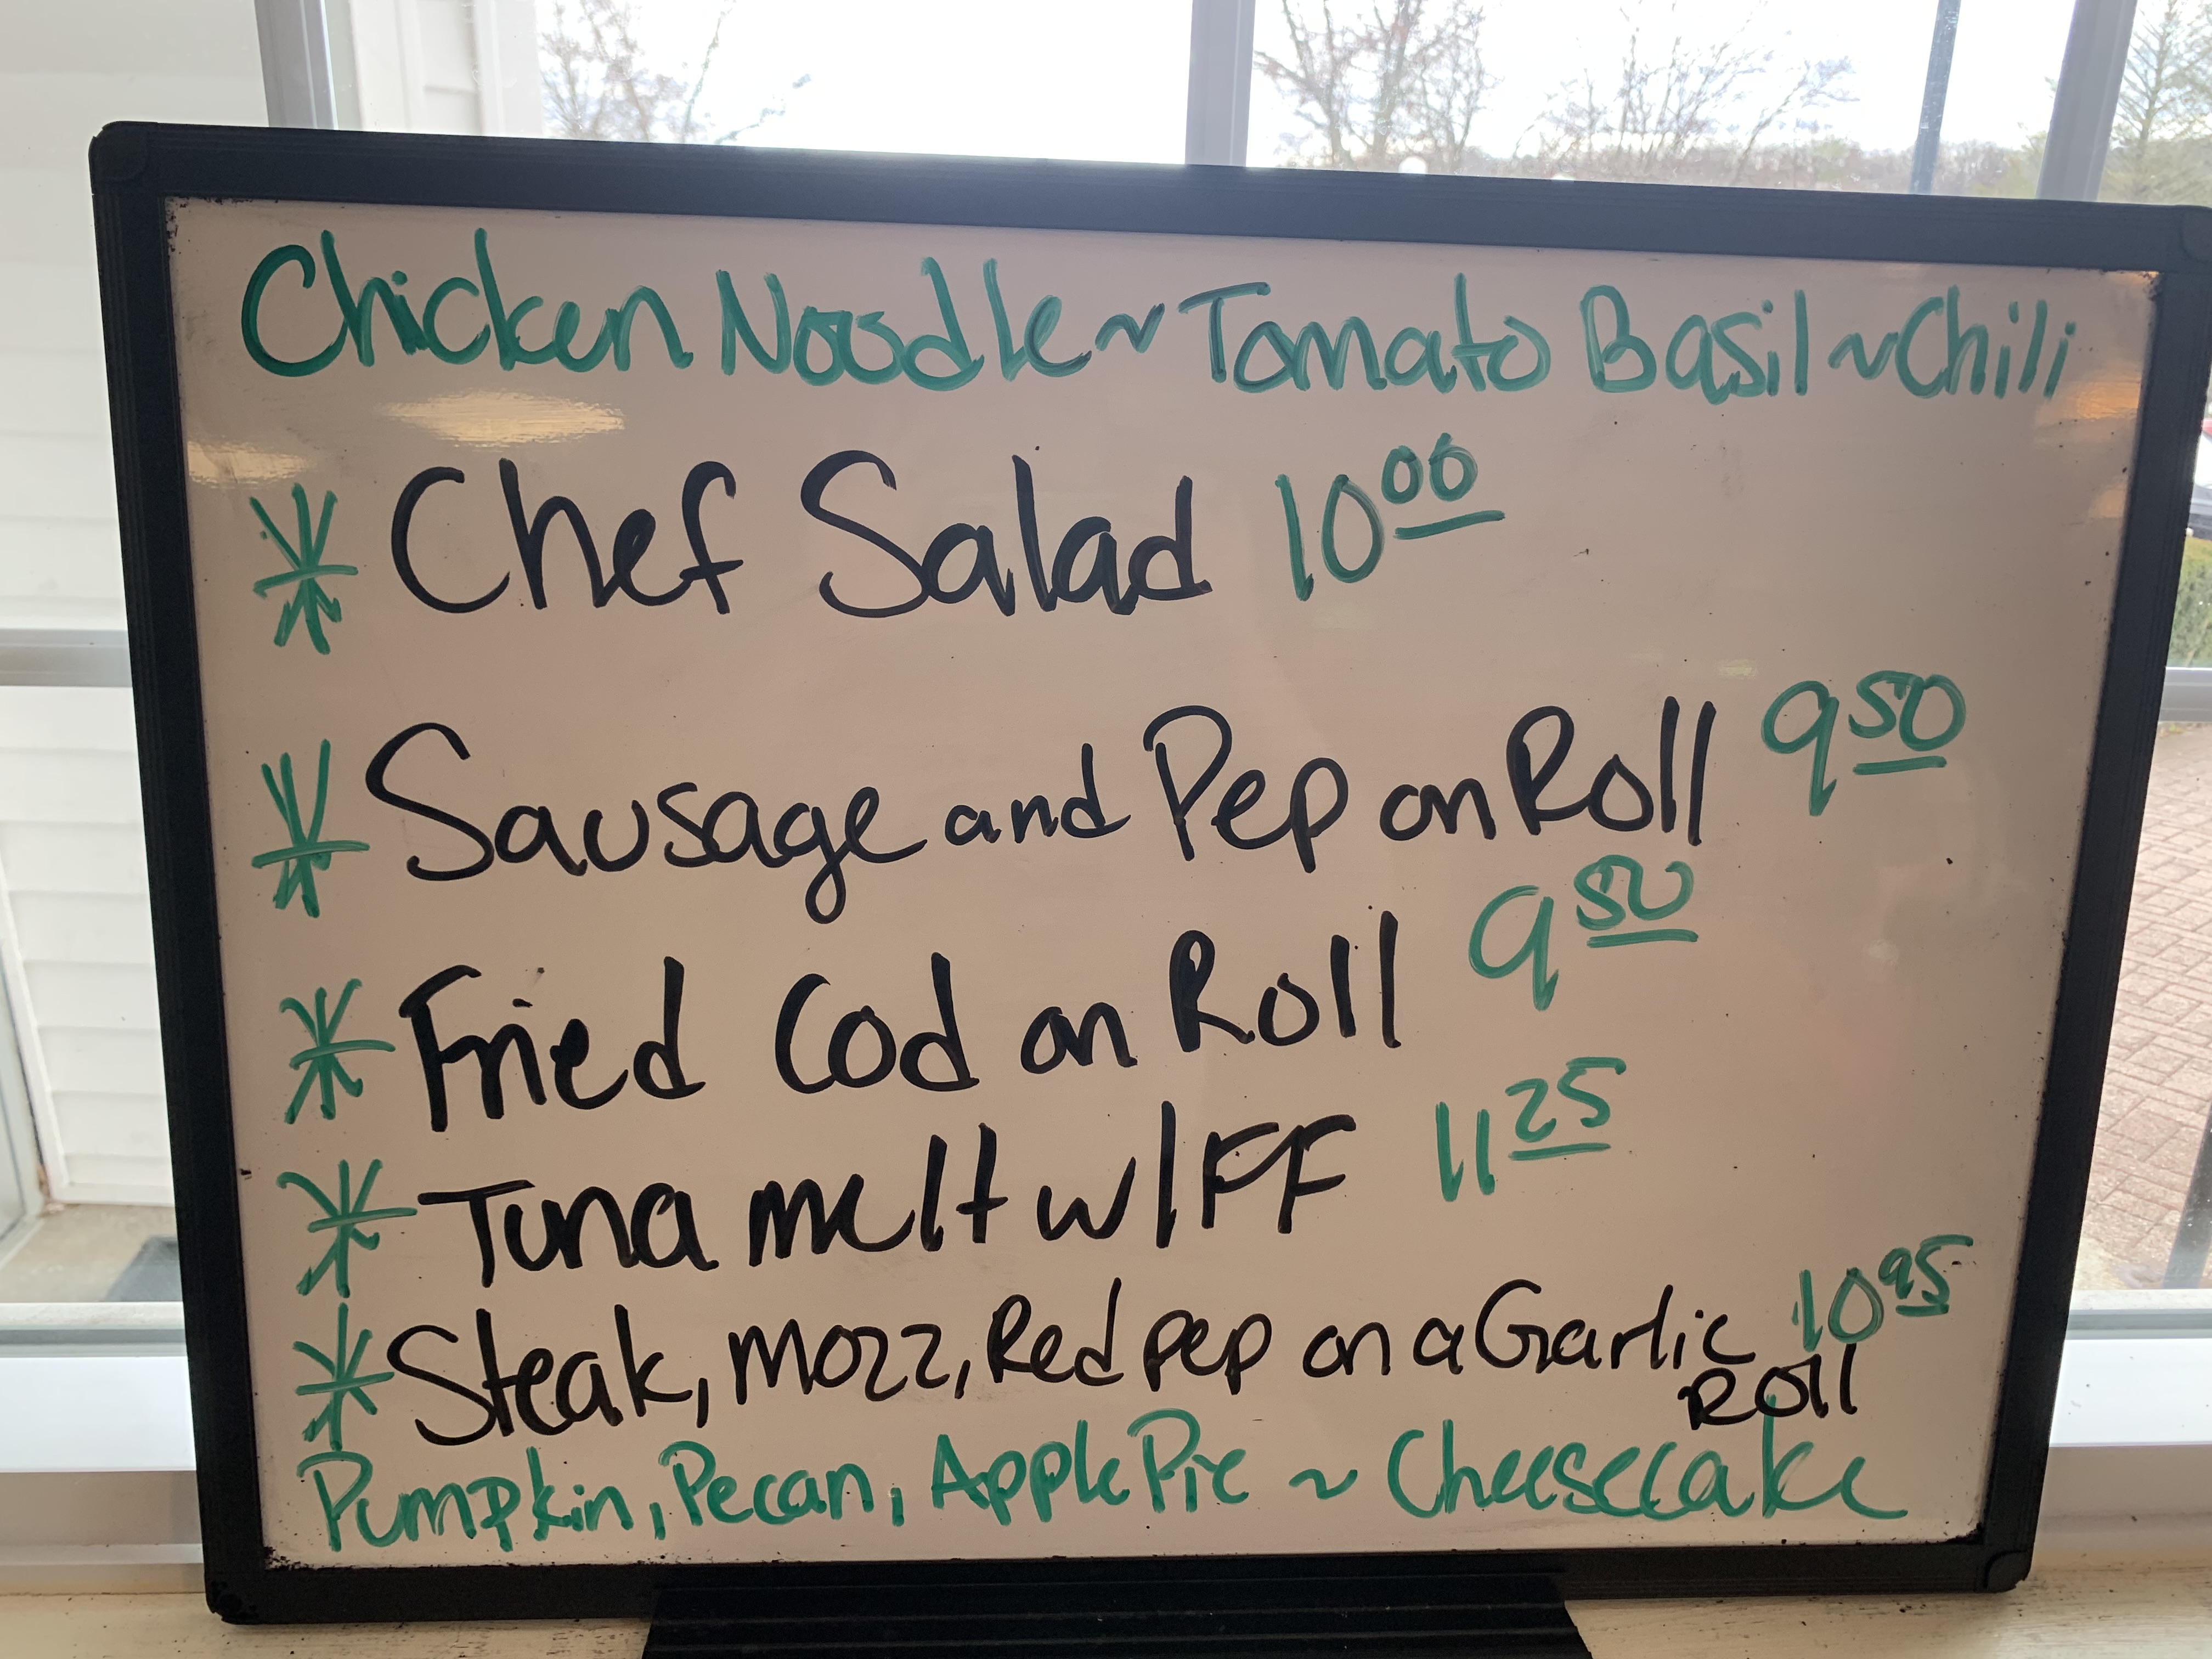 Chicken Noodle ~ Tomato Basil ~ Chili
* Chef Salad 10 00
* Sausage and Pep on Roll 9 50
* Fried Cod on Roll 9 50
* Tuna melt w/FF 11 25
* Steak, Mozz, Red pep on a Garlic 10 95
Roll
Pumpkin, Pecan, Apple Pie ~ Cheesecake